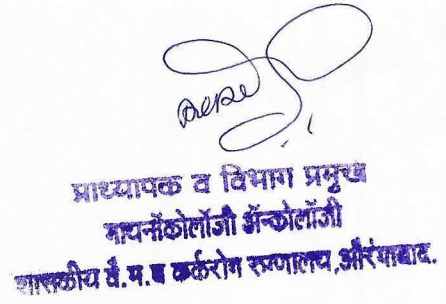 प्राध्यापक व विभाग प्रमुख
गायनॅकोलॉजी ॲन्कोलॉजी
शासकीय वै.म.व कर्करोग रुग्णालय,औरंगाबाद.